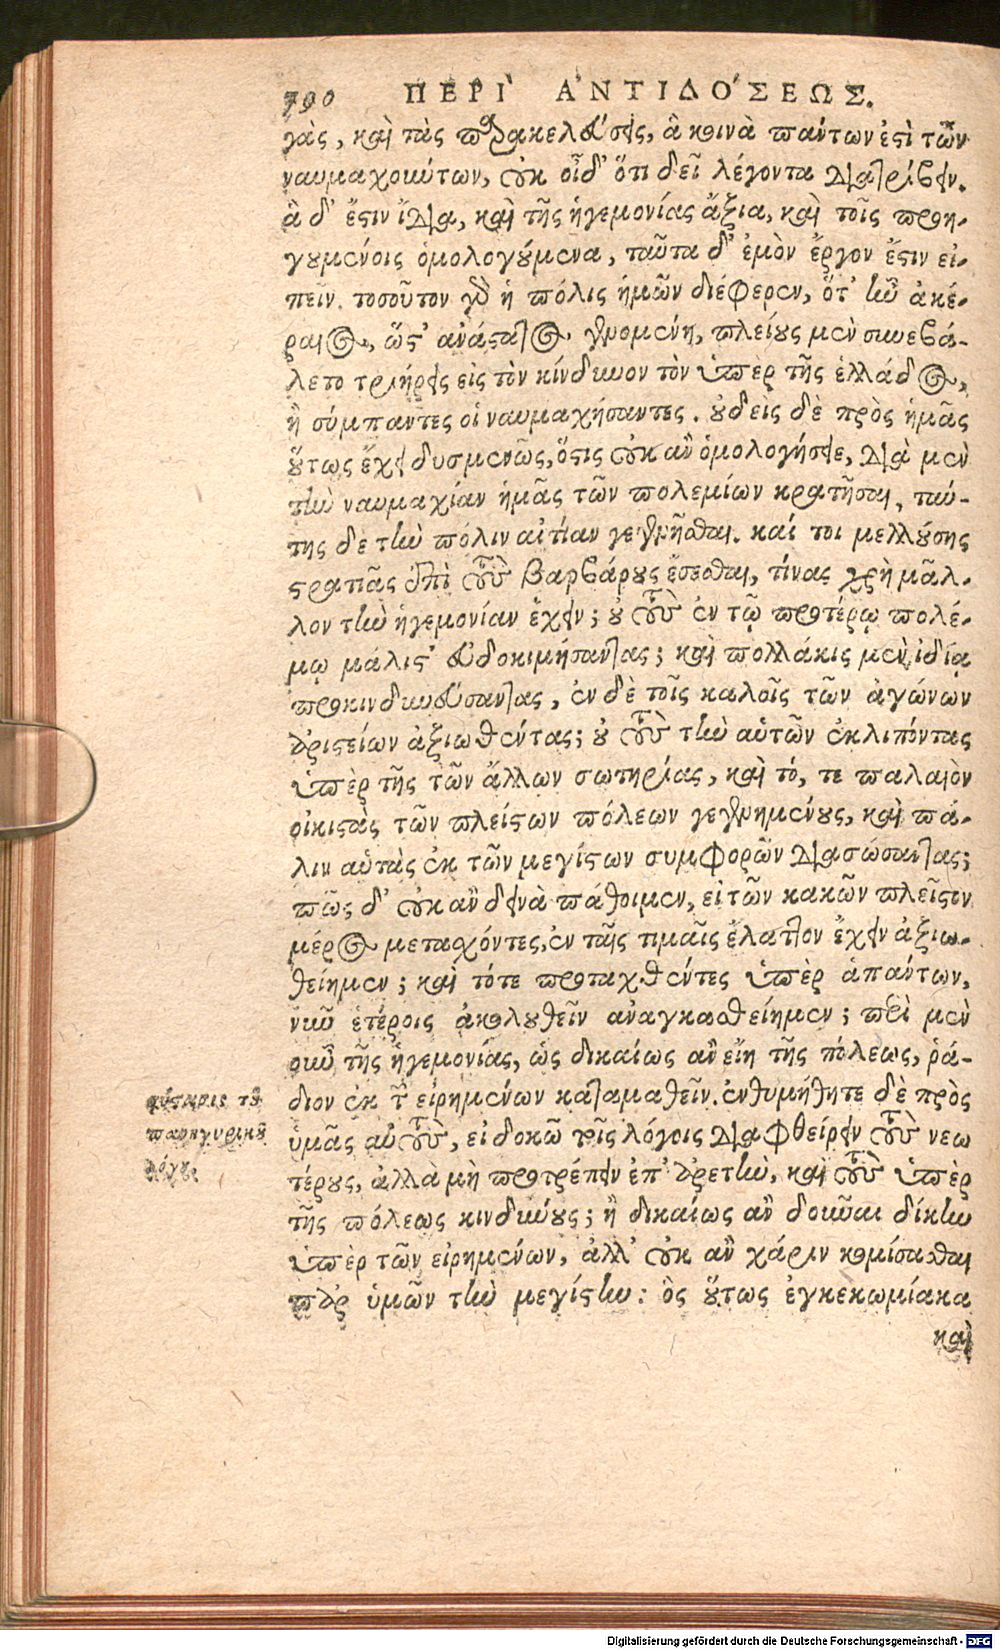 790 ΠΕΡῚ ἈΝΤΙΔΌΣΕΩΣ.
γὰς, καὶ τὰς παρακελεύσεις, ἃ κοινὰ πάντων ἐςὶ τῶν
ναυμαχούντων, οὐκ οἶδ' ὅτι δεῖ λέγοντα διατρίβειν.
ἃ δ' ἔςιν ἴδια, καὶ τῆς ἡγεμονίας ἄξια, καὶ τοῖς προη-
γουμένοις ὁμολογούμενα, ταῦτα δ' ἐμὸν ἔργον ἔςιν εἰ-
πεῖν. τοσοῦτον γὰρ ἡ πόλις ἡμῶν διέφερεν, ὅτ' ἦν ἀκέ-
ραιος, ὥς' ἀνάςατος γενομένη, πλείους μὲν συνεβά-
λετο τριήρεις εἰς τὸν κίνδυνον τὸν ὑπὲρ τῆς ἑλλάδος,
ἢ σύμπαντες οἱ ναυμαχήσαντες. οὐδεὶς δὲ πρὸς ἡμᾶς
οὕτως ἔχει δυσμενῶς, ὅςις οὐκ ἂν ὁμολογήσειε, διὰ μὲν
τὴν ναυμαχίαν ἡμᾶς τῶν πολεμίων κρατῆσαι, ταύ-
της δε τὴν πόλιν αἰτίαν γεγενῆσθαι. καί τοι μελλούσης
ςρατιᾶς ἐπὶ τοὺς βαρβάρους ἔσεσθαι, τίνας χρὴ μᾶλ-
λον τὴν ἡγεμονίαν ἔχειν; οὐ τοὺς ἐν τῷ προτέρῳ πολέ-
μῳ μάλις' εὐδοκιμήσαντας; καὶ πολλάκις μὲν ἰδίᾳ
προκινδυνεύσαντας, ἐν δὲ τοῖς καλοῖς τῶν ἀγώνων
ἀριςείων ἀξιωθέντας; οὐ τοὺς τὴν αὑτῶν ἐκλιπόντας
ὑπὲρ τῆς τῶν ἄλλων σωτηρίας, καὶ τό, τε παλαιὸν
οἰκιςὰς τῶν πλείςων πόλεων γεγενημένους, καὶ πά-
λιν αὐτὰς ἐκ τῶν μεγίςων συμφορῶν διασώσαντας;
πῶς δ' οὐκ ἂν δεινὰ πάθοιμεν, εἰ τῶν κακῶν πλεῖςον
μέρος μεταχόντες, ἐν ταῖς τιμαῖς ἔλαττον ἔχειν ἀξιω-
θείημεν; καὶ τότε προταχθέντες ὑπὲρ ἁπάντων,
νῦν ἑτέροις ἀκολουθεῖν ἀναγκασθείημεν; περὶ μὲν
οὖν τῆς ἡγεμονίας, ὡς δικαίως ἂν εἴη τῆς πόλεως, ῥά-
διον ἐκ τῶν εἰρημένων καταμαθεῖν. ἐνθυμήθητε δὲ πρὸς
ὑμᾶς αὐτοὺς, εἰ δοκῶ τοῖς λόγοις διαφθείρειν τοὺς νεω
τέρους, ἀλλὰ μὴ προτρέπειν ἐπ' ἀρετὴν, καὶ τοὺς ὑπὲρ
τῆς πόλεως κινδύνους; ἢ δικαίως ἂν δοῦναι δίκην
ὑπὲρ τῶν εἰρημένων, ἀλλ' οὐκ ἂν χάριν κομίσασθαι
παρ ὑμῶν τὴν μεγίςην: ὃς οὕτως ἐγκεκωμίακα
καὶ
τοῦ
πανηγυρικοῦ
λόγου
Digitalisierung gefördert durch die Deutsche Forschungsgemeinschaft - DFG